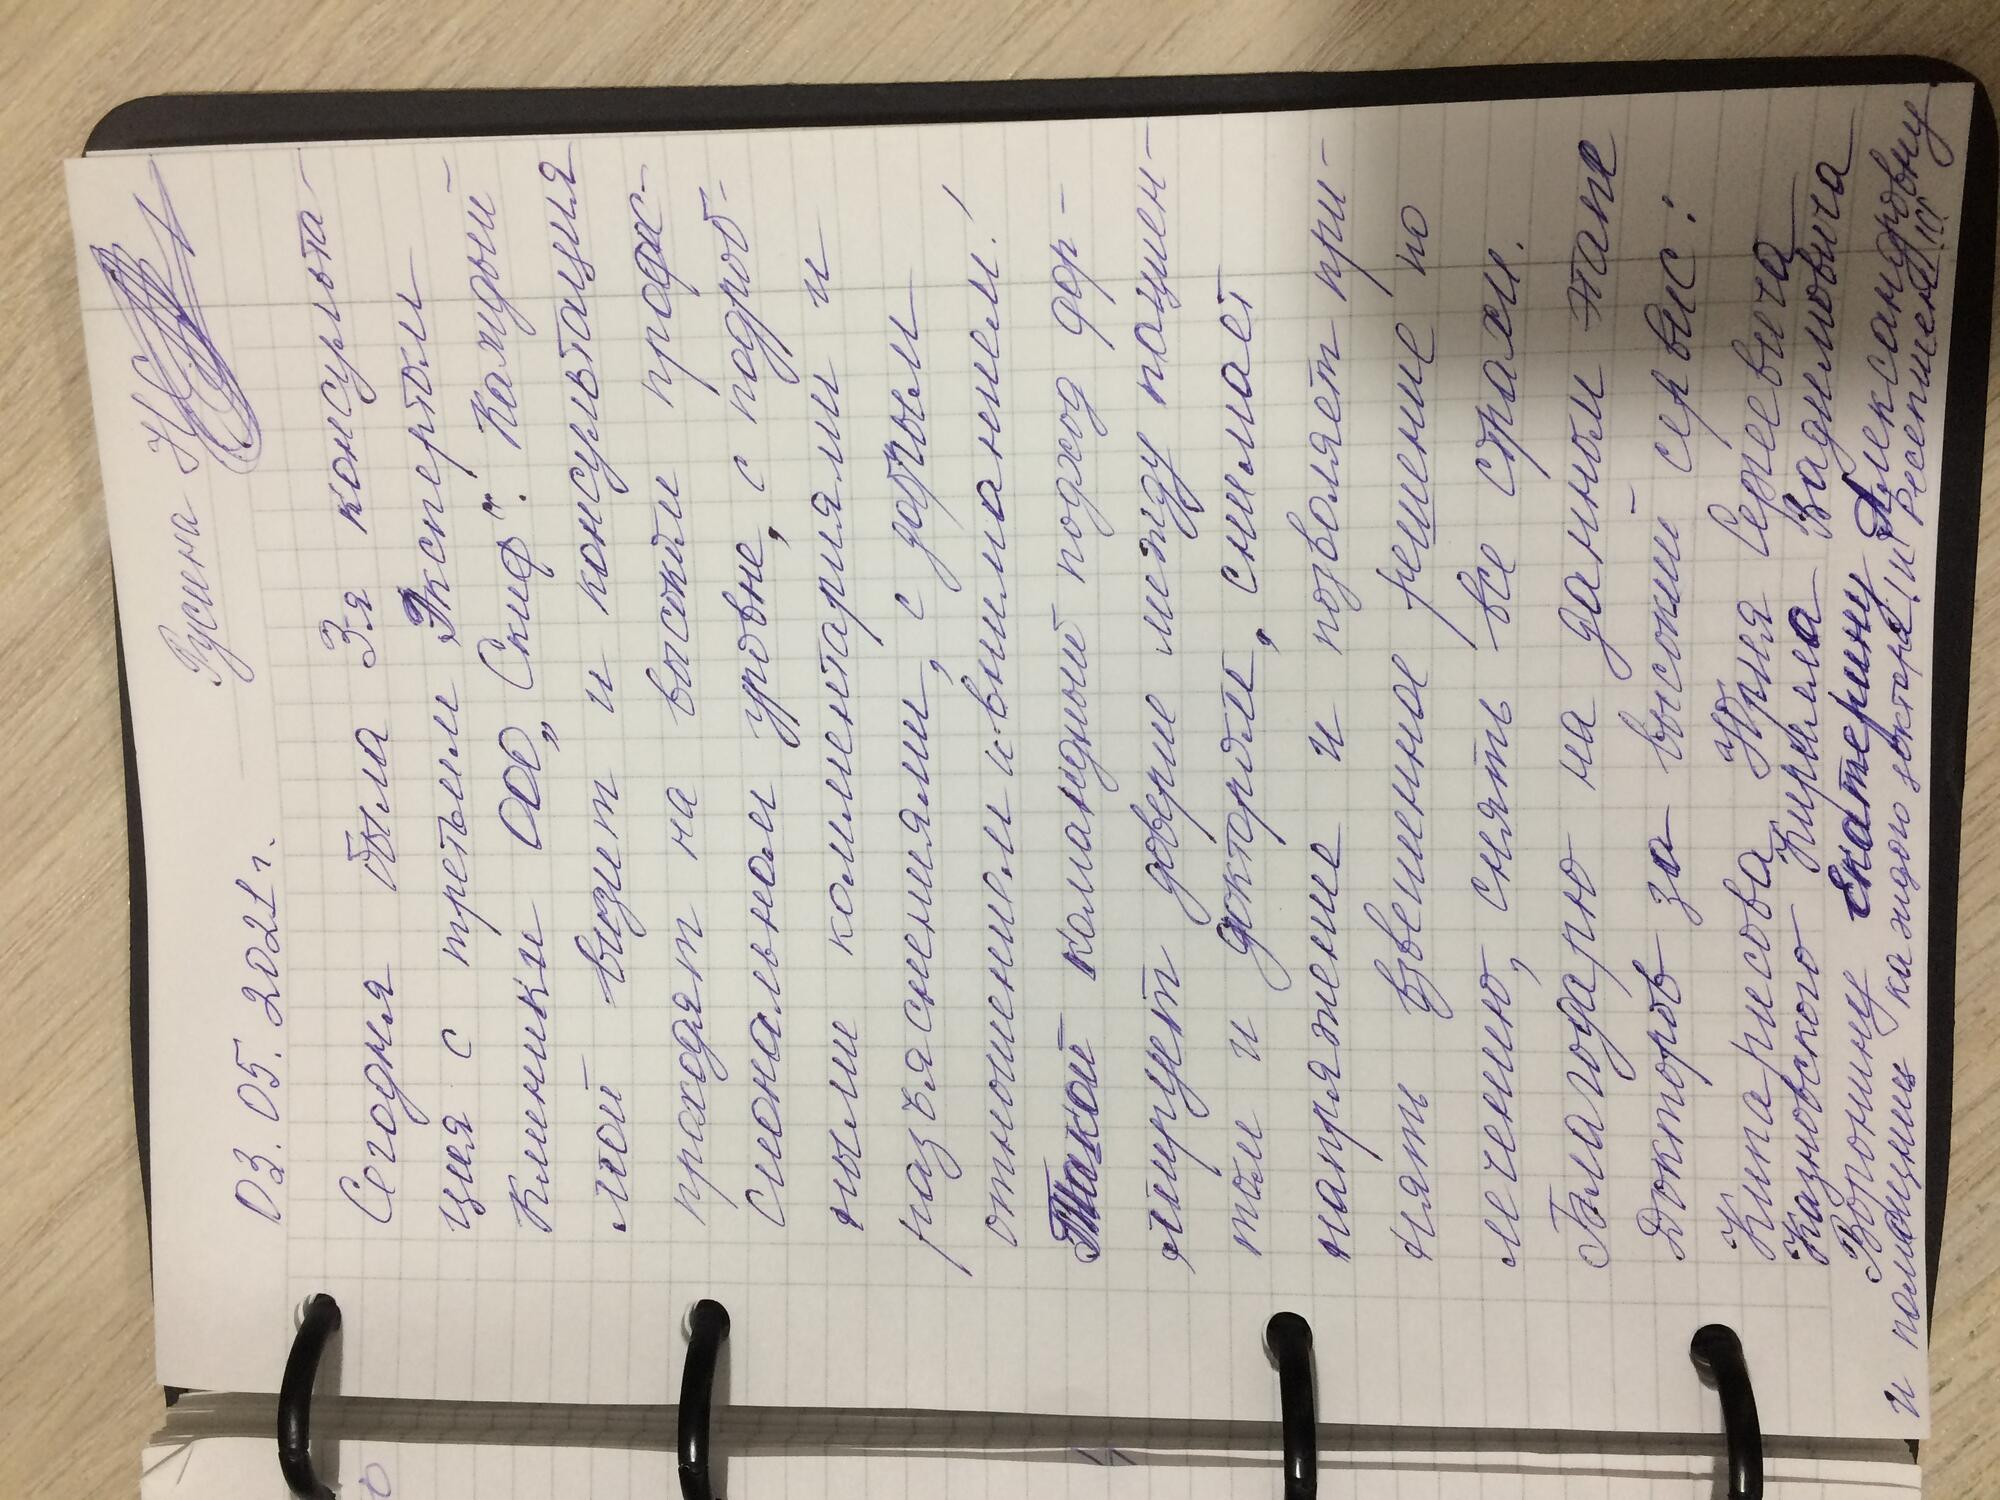 Русина Н
03.05.2021 г.
Сегодня была 3-я консульта-
ция с третьим Экспертом
Клиники ООО „Скиф". Каждый
мой визит и консультация
проходят на высоком профес-
сиональном уровне, с подроб-
ными комментариями и
разъяснениями, с добрым
отношением и вниманием!
Такой командный подход фор-
мирует доверие между пациен-
том и доктором, снимает
напряжение и позволяет при-
нять взвешенное решение по
лечению, снять все страхи.
Благодарю на данном этапе
Докторов за высокий сервис:
Кипарисова Юрия Сергеевича
Казновского Кирилла Вадимовича
Воронину Екатерину Александровну
и помощниц каждого доктора! и Ресепшен!!!